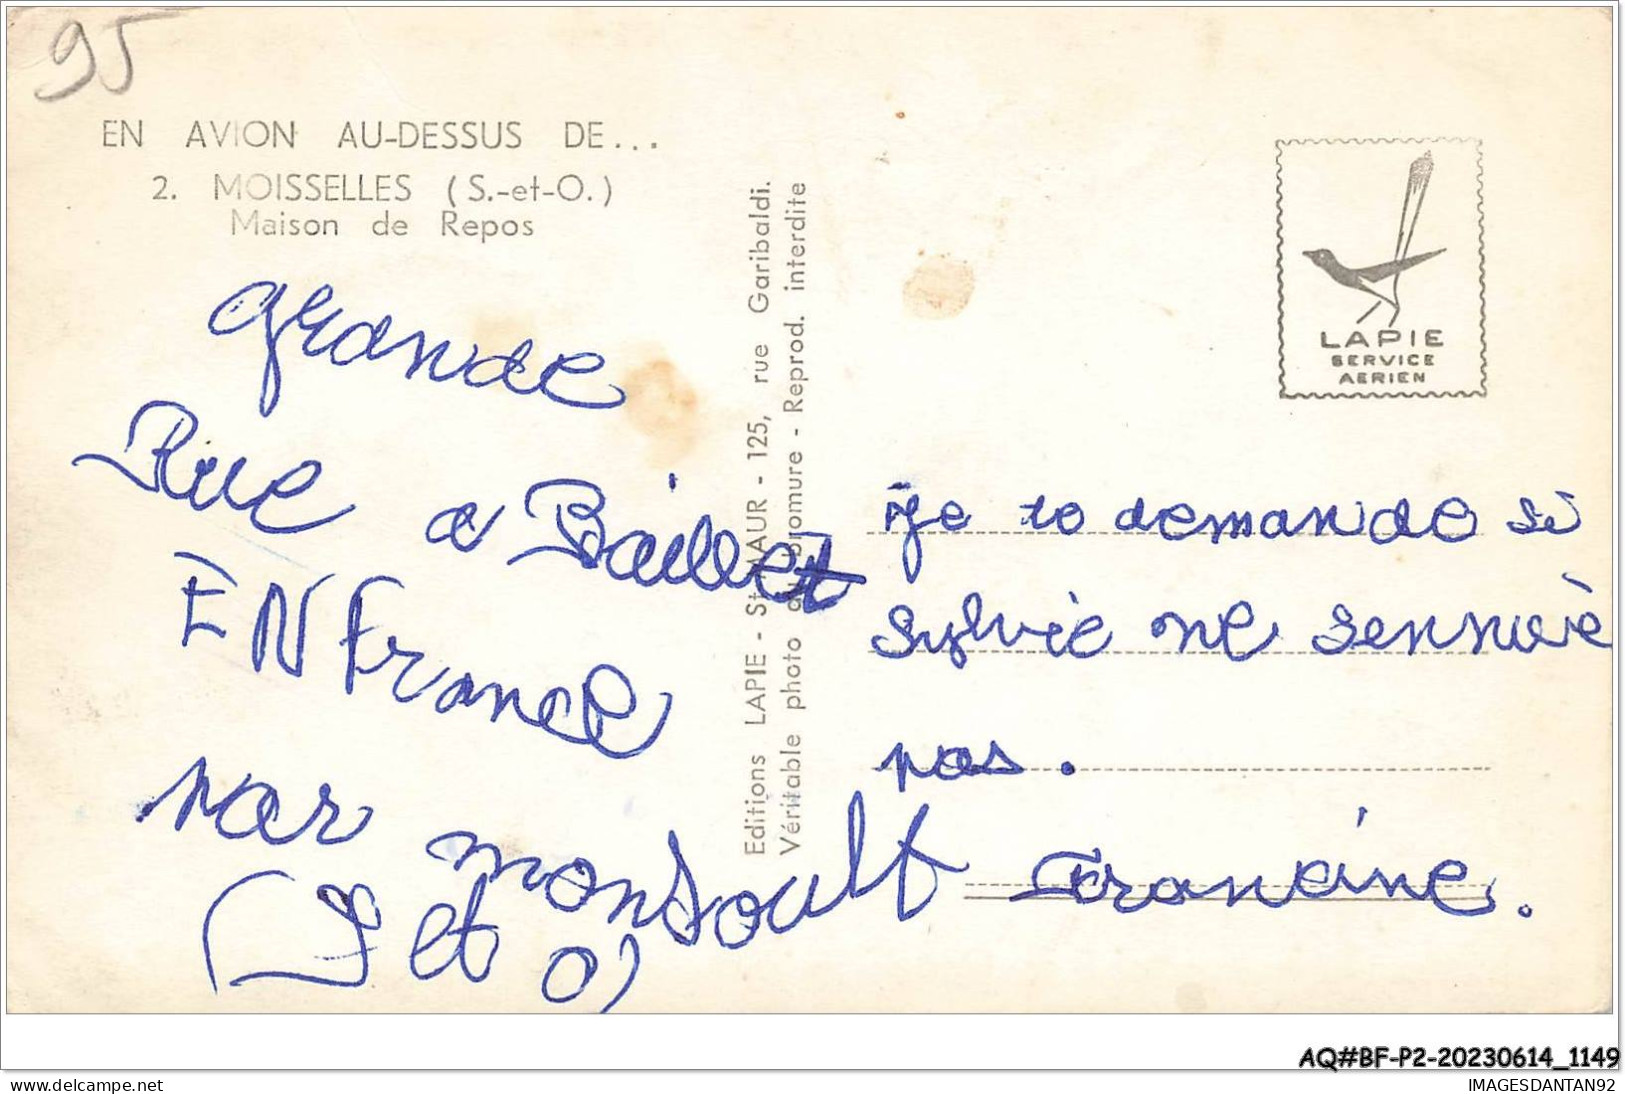 95
EN AVION AU-DESSUS DE...
2. MOISSELLES (S.-et-O.)
Maison de Repos
grande
Rue a Baillet
EN France
par monsoult
(S et O)
Editions LAPIE - St-MAUR - 125, rue Garibaldi.
Véritable photo au Bromure - Reprod. interdite
LAPIE
SERVICE
AERIEN
je te demande si
sylvie ne sennuiè
pas.
Francine.
AQ#BF-P2-20230614_1149
www.delcampe.net
IMAGESDANTAN92